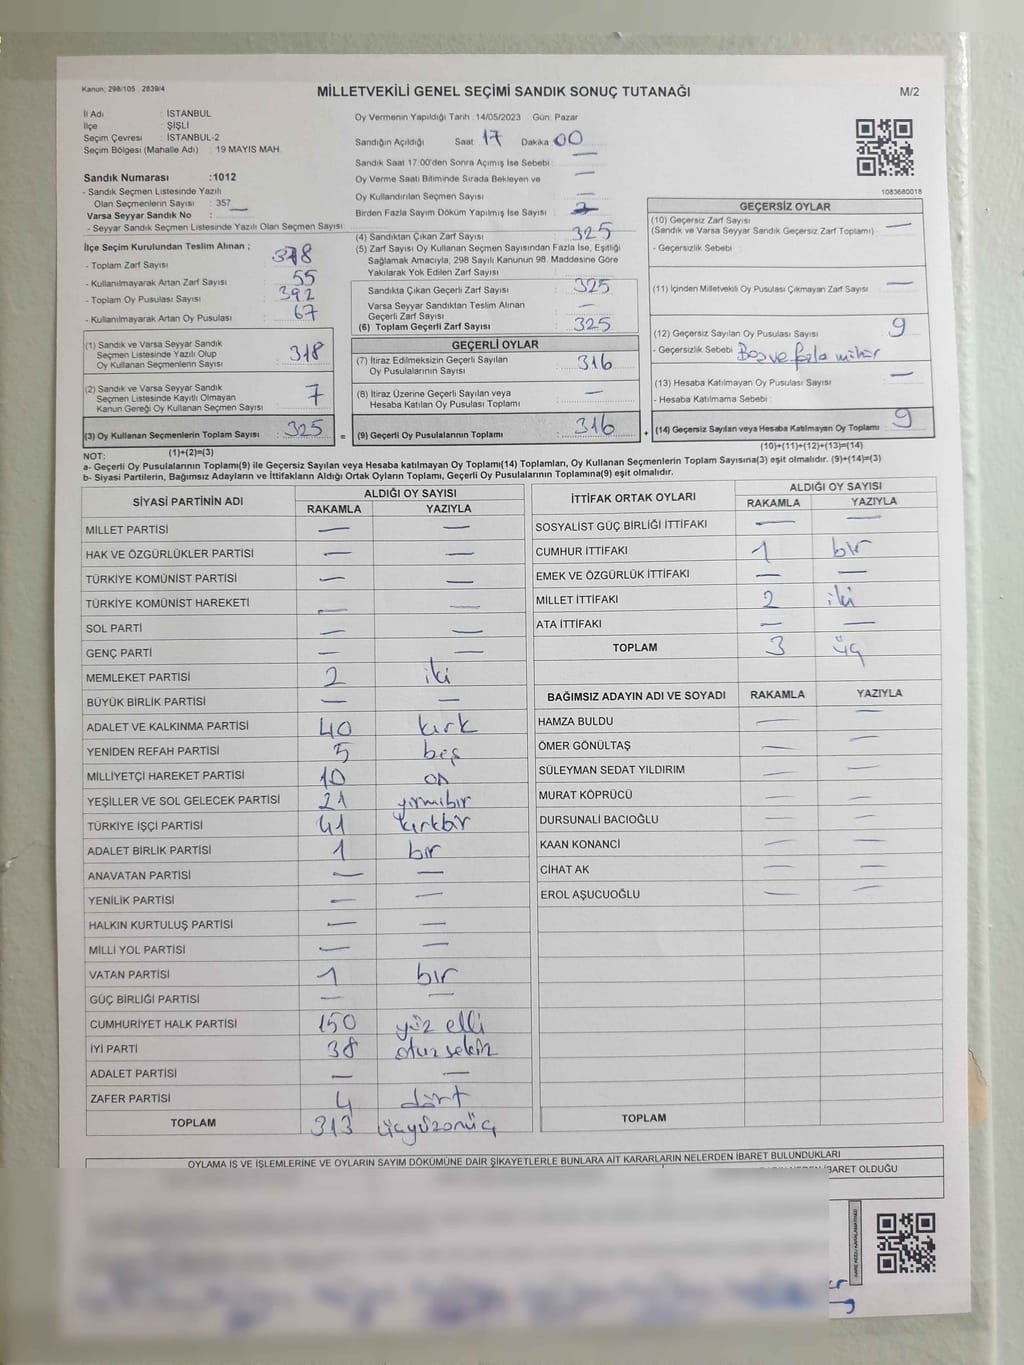 Kanun; 298/105 , 2839/4
MİLLETVEKİLİ GENEL SEÇİMİ SANDIK SONUÇ TUTANAĞI
M/2
İl Adı : İSTANBUL
İlçe : ŞİŞLİ
Seçim Çevresi : İSTANBUL-2
Seçim Bölgesi (Mahalle Adı) : 19 MAYIS MAH.
Oy Vermenin Yapıldığı Tarih :14/05/2023 Gün: Pazar
Sandığın Açıldığı Saat 17 Dakika 00
Sandık Saat 17:00'den Sonra Açımış İse Sebebi : —
Oy Verme Saati Bitiminde Sırada Bekleyen ve —
Oy Kullandırılan Seçmen Sayısı —
Birden Fazla Sayım Döküm Yapılmış İse Sayısı
1083680018
Sandık Numarası :1012
- Sandık Seçmen Listesinde Yazılı
Olan Seçmenlerin Sayısı : 357
Varsa Seyyar Sandık No : —
- Seyyar Sandık Seçmen Listesinde Yazılı Olan Seçmen Sayısı:
İlçe Seçim Kurulundan Teslim Alınan ;
- Toplam Zarf Sayısı 378
- Kullanılmayarak Artan Zarf Sayısı 55
- Toplam Oy Pusulası Sayısı 392
- Kullanılmayarak Artan Oy Pusulası 67
(1) Sandık ve Varsa Seyyar Sandık
Seçmen Listesinde Yazılı Olup
Oy Kullanan Seçmenlerin Sayısı 318
(2) Sandık ve Varsa Seyyar Sandık
Seçmen Listesinde Kayıtlı Olmayan
Kanun Gereği Oy Kullanan Seçmen Sayısı 7
(3) Oy Kullanan Seçmenlerin Toplam Sayısı : 325
(1)+(2)=(3)
(4) Sandıktan Çıkan Zarf Sayısı 325
(5) Zarf Sayısı Oy Kullanan Seçmen Sayısından Fazla İse, Eşitliği
Sağlamak Amacıyla, 298 Sayılı Kanunun 98. Maddesine Göre
Yakılarak Yok Edilen Zarf Sayısı
Sandıkta Çıkan Geçerli Zarf Sayısı 325
Varsa Seyyar Sandıktan Teslim Alınan
Geçerli Zarf Sayısı —
(6) Toplam Geçerli Zarf Sayısı 325
GEÇERLİ OYLAR
(7) İtiraz Edilmeksizin Geçerli Sayılan
Oy Pusulalarının Sayısı 316
(8) İtiraz Üzerine Geçerli Sayılan veya
Hesaba Katılan Oy Pusulası Toplamı —
= (9) Geçerli Oy Pusulalarının Toplamı : 316
GEÇERSİZ OYLAR
(10) Geçersiz Zarf Sayısı
(Sandık ve Varsa Seyyar Sandık Geçersiz Zarf Toplamı) —
- Geçersizlik Sebebi :
(11) İçinden Milletvekili Oy Pusulası Çıkmayan Zarf Sayısı —
(12) Geçersiz Sayılan Oy Pusulası Sayısı 9
- Geçersizlik Sebebi : Boş ve fazla mühür
(13) Hesaba Katılmayan Oy Pusulası Sayısı —
- Hesaba Katılmama Sebebi :
+ (14) Geçersiz Sayılan veya Hesaba Katılmayan Oy Toplamı : 9
(10)+(11)+(12)+(13)=(14)
NOT:
a- Geçerli Oy Pusulalarının Toplamı(9) ile Geçersiz Sayılan veya Hesaba katılmayan Oy Toplamı(14) Toplamları, Oy Kullanan Seçmenlerin Toplam Sayısına(3) eşit olmalıdır. (9)+(14)=(3)
b- Siyasi Partilerin, Bağımsız Adayların ve İttifakların Aldığı Ortak Oyların Toplamı, Geçerli Oy Pusulalarının Toplamına(9) eşit olmalıdır.
SİYASİ PARTİNİN ADI ALDIĞI OY SAYISI
RAKAMLA YAZIYLA
MİLLET PARTİSİ — —
HAK VE ÖZGÜRLÜKLER PARTİSİ — —
TÜRKİYE KOMÜNİST PARTİSİ — —
TÜRKİYE KOMÜNİST HAREKETİ — —
SOL PARTİ — —
GENÇ PARTİ — —
MEMLEKET PARTİSİ 2 iki
BÜYÜK BİRLİK PARTİSİ — —
ADALET VE KALKINMA PARTİSİ 40 kırk
YENİDEN REFAH PARTİSİ 5 beş
MİLLİYETÇİ HAREKET PARTİSİ 10 on
YEŞİLLER VE SOL GELECEK PARTİSİ 21 yirmibir
TÜRKİYE İŞÇİ PARTİSİ 41 kırkbir
ADALET BİRLİK PARTİSİ 1 bir
ANAVATAN PARTİSİ — —
YENİLİK PARTİSİ — —
HALKIN KURTULUŞ PARTİSİ — —
MİLLİ YOL PARTİSİ — —
VATAN PARTİSİ 1 bir
GÜÇ BİRLİĞİ PARTİSİ — —
CUMHURİYET HALK PARTİSİ 150 yüz elli
İYİ PARTİ 38 otuz sekiz
ADALET PARTİSİ — —
ZAFER PARTİSİ 4 dört
TOPLAM 313 üçyüzonüç
İTTİFAK ORTAK OYLARI ALDIĞI OY SAYISI
RAKAMLA YAZIYLA
SOSYALİST GÜÇ BİRLİĞİ İTTİFAKI — —
CUMHUR İTTİFAKI 1 bir
EMEK VE ÖZGÜRLÜK İTTİFAKI — —
MİLLET İTTİFAKI 2 iki
ATA İTTİFAKI — —
TOPLAM 3 üç
BAĞIMSIZ ADAYIN ADI VE SOYADI RAKAMLA YAZIYLA
HAMZA BULDU — —
ÖMER GÖNÜLTAŞ — —
SÜLEYMAN SEDAT YILDIRIM — —
MURAT KÖPRÜCÜ — —
DURSUNALİ BACIOĞLU — —
KAAN KONANCİ — —
CİHAT AK — —
EROL AŞUCUOĞLU — —
TOPLAM
OYLAMA İŞ VE İŞLEMLERİNE VE OYLARIN SAYIM DÖKÜMÜNE DAİR ŞİKAYETLERLE BUNLARA AİT KARARLARIN NELERDEN İBARET BULUNDUKLARI
İBARET OLDUĞU